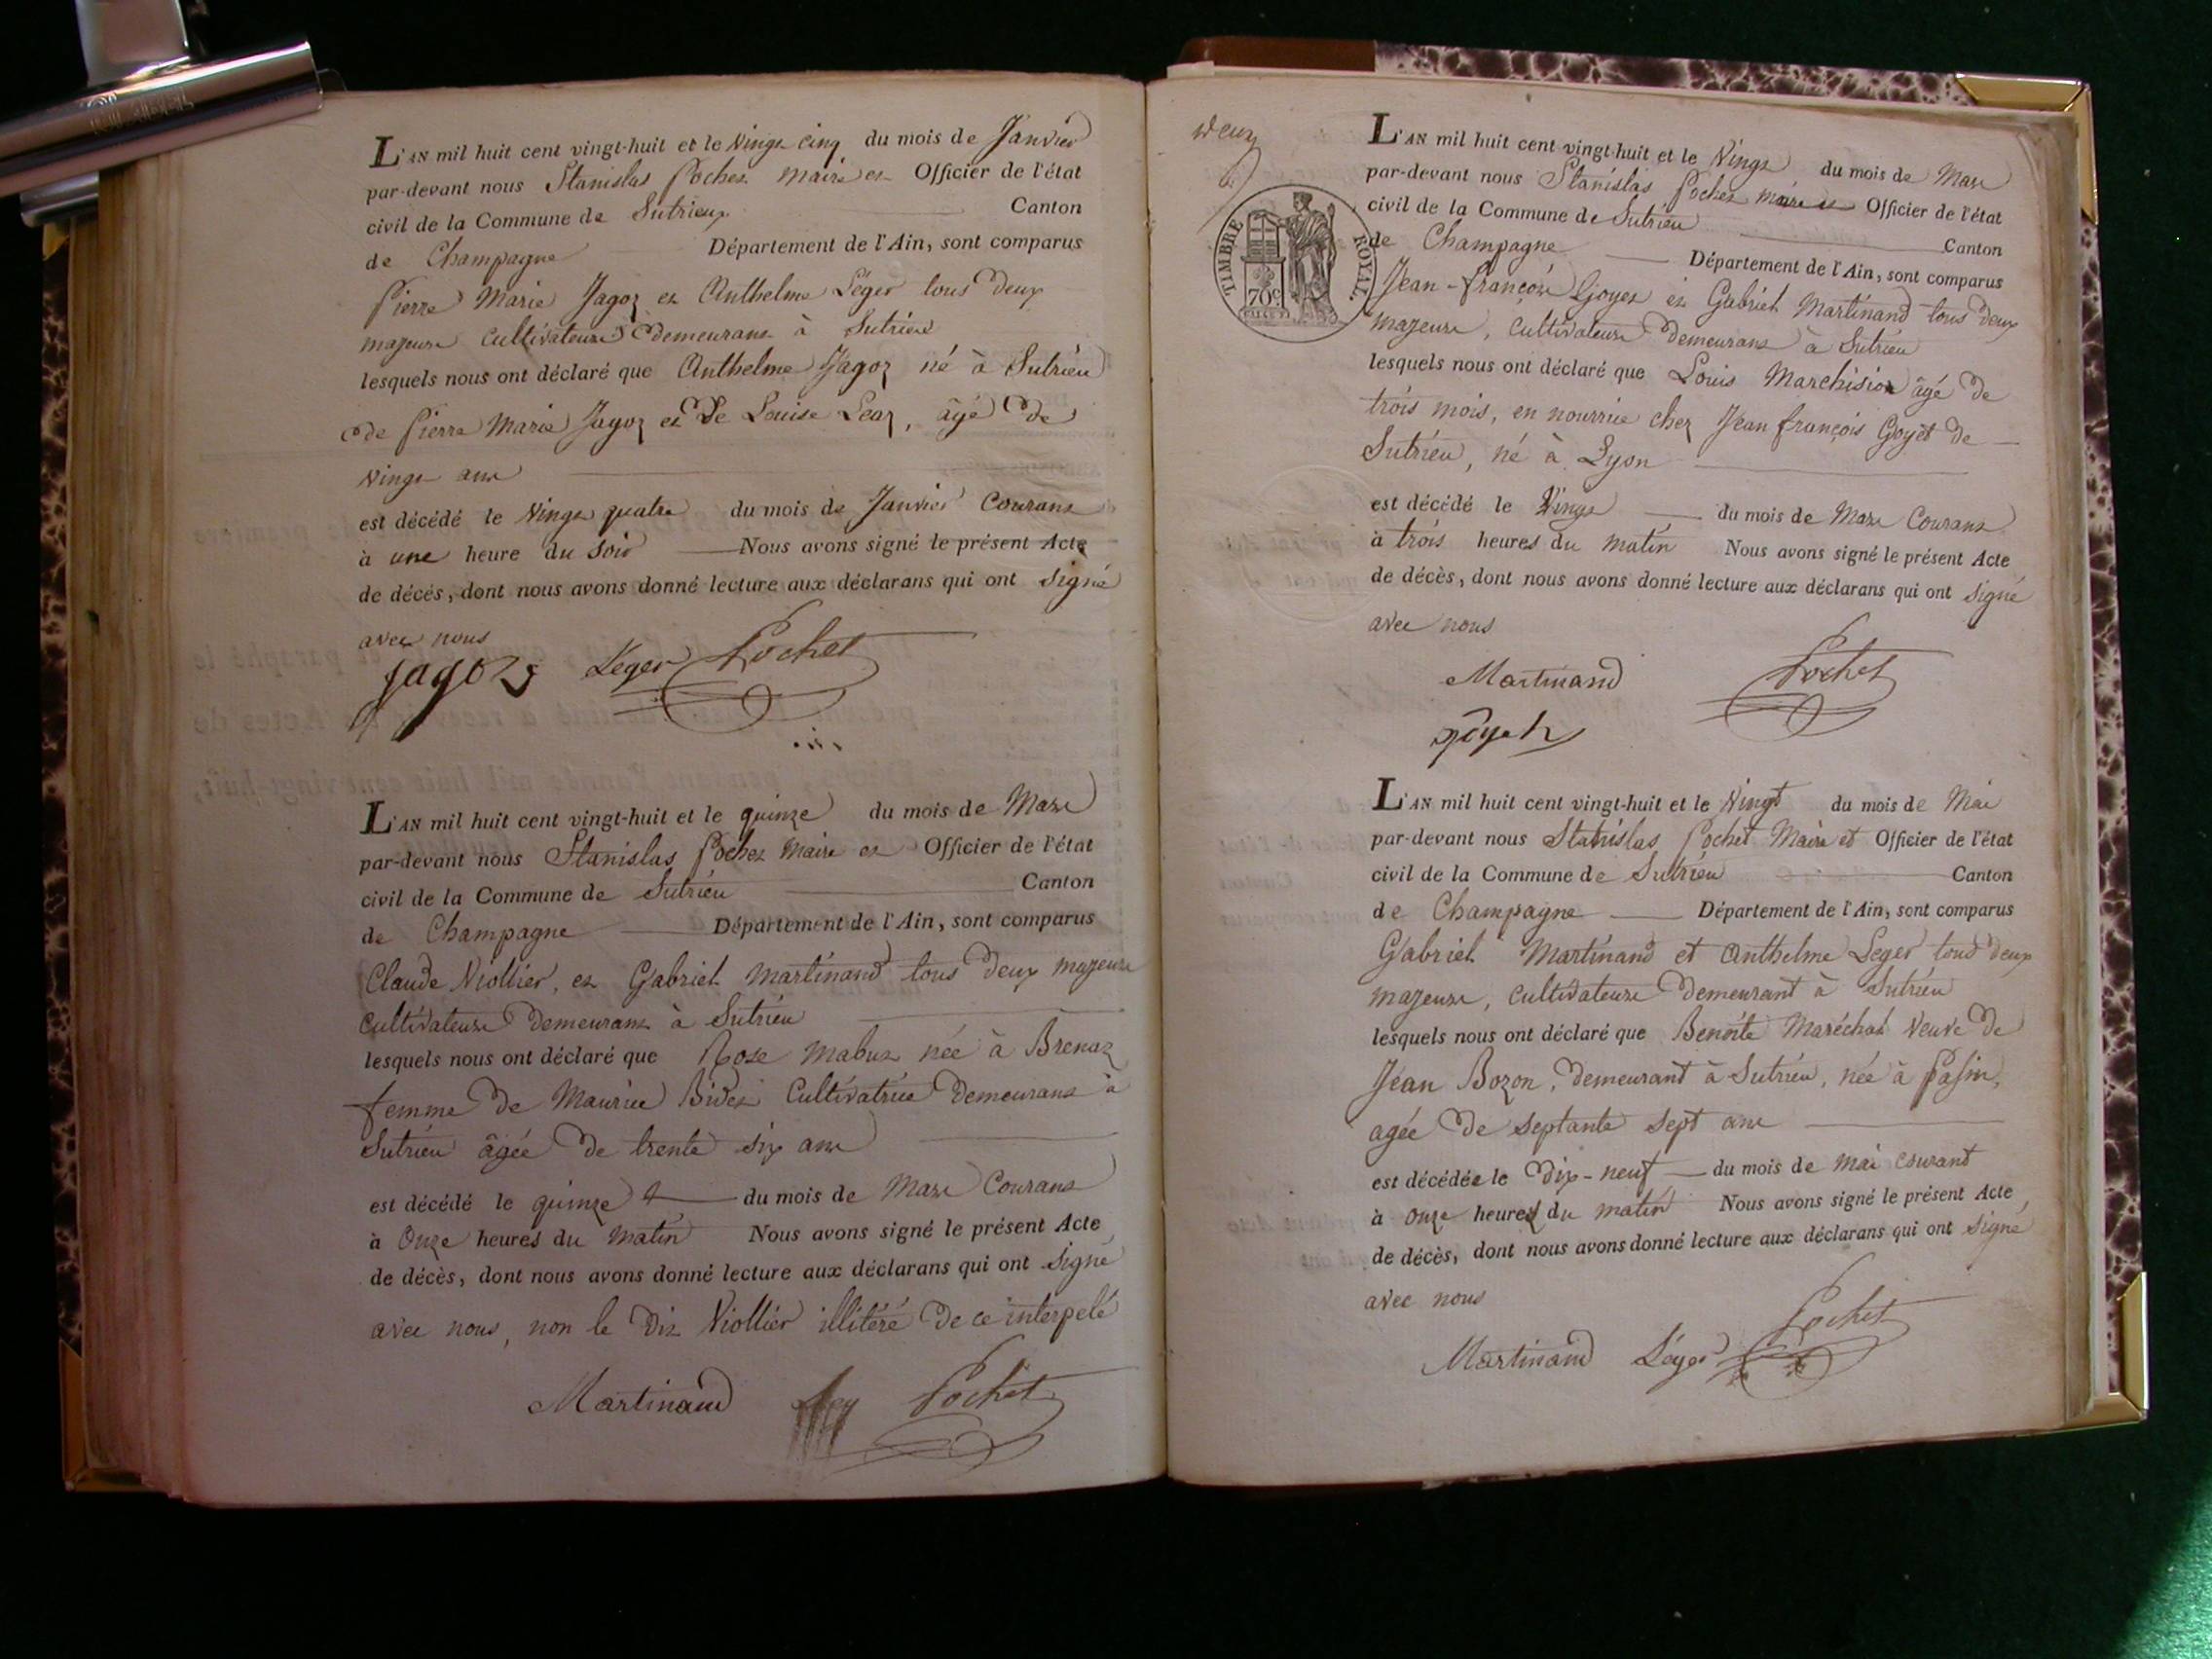 L'AN mil huit cent vingt-huit et le Vingt cinq du mois de Janvier
par-devant nous Stanislas Pochet maire et Officier de l'état
civil de la Commune de Sutrieux Canton
de Champagne Département de l'Ain, sont comparus
Pierre Marie Jagoz et Anthelme Léger tous deux
majeurs cultivateurs demeurant à Sutrieu
lesquels nous ont déclaré que Anthelme Jagoz né à Sutrieu
de Pierre Marie Jagoz et De Louise , âgé de
Vingt ans
est décédé le Vingt quatre du mois de Janvier Courant
à une heure du soir Nous avons signé le présent Acte
de décès, dont nous avons donné lecture aux déclarans qui ont signé
avec nous
Jagoz Léger Pochet
L'AN mil huit cent vingt-huit et le quinze du mois de Mars
par-devant nous Stanislas Pochet Maire et Officier de l'état
civil de la Commune de Sutrieu Canton
de Champagne Département de l'Ain, sont comparus
Claude Viollier, et Gabriel Martinand tous deux majeurs
cultivateurs demeurant à Sutrieu
lesquels nous ont déclaré que Rose née à Brenaz
femme de Maurice Bidet Cultivatrice Demeurant à
Sutrieu âgée De trente six ans
est décédé le quinze du mois de Mars Courant
à Onze heures du Matin Nous avons signé le présent Acte
de décès, dont nous avons donné lecture aux déclarans qui ont signé
avec nous, non le Dit Viollier illitéré De ce interpelé
Martinand Pochet
deux
TIMBRE ROYAL
70c
L'AN mil huit cent vingt-huit et le Vingt du mois de Mars
par-devant nous Stanislas Pochet maire et Officier de l'état
civil de la Commune de Sutrieu Canton
de Champagne Département de l'Ain, sont comparus
Jean-françois Goyet et Gabriel Martinand tous deux
majeurs, cultivateurs Demeurant à Sutrieu
lesquels nous ont déclaré que Louis Marchision âgé De
trois mois, en nourrice chez Jean françois Goyet de
Sutrieu, né à Lyon
est décédé le Vingt du mois de Mars Courant
à trois heures du matin Nous avons signé le présent Acte
de décès, dont nous avons donné lecture aux déclarans qui ont signé
avec nous
Martinand Pochet
goyet
L'AN mil huit cent vingt-huit et le Vingt du mois de Mai
par-devant nous Stanislas Pochet Maire et Officier de l'état
civil de la Commune de Sutrieu Canton
de Champagne Département de l'Ain, sont comparus
Gabriel Martinand et Anthelme Leger tous deux
majeurs, cultivateurs Demeurant à Sutrieu
lesquels nous ont déclaré que Benoite Maréchal Veuve De
Jean Bozon, Demeurant à Sutrieu, née à Passin,
agée De septante sept ans
est décédée le Dix-neuf du mois de mai courant
à onze heures du matin Nous avons signé le présent Acte
de décès, dont nous avons donné lecture aux déclarans qui ont signé
avec nous
Martinand Léger Pochet